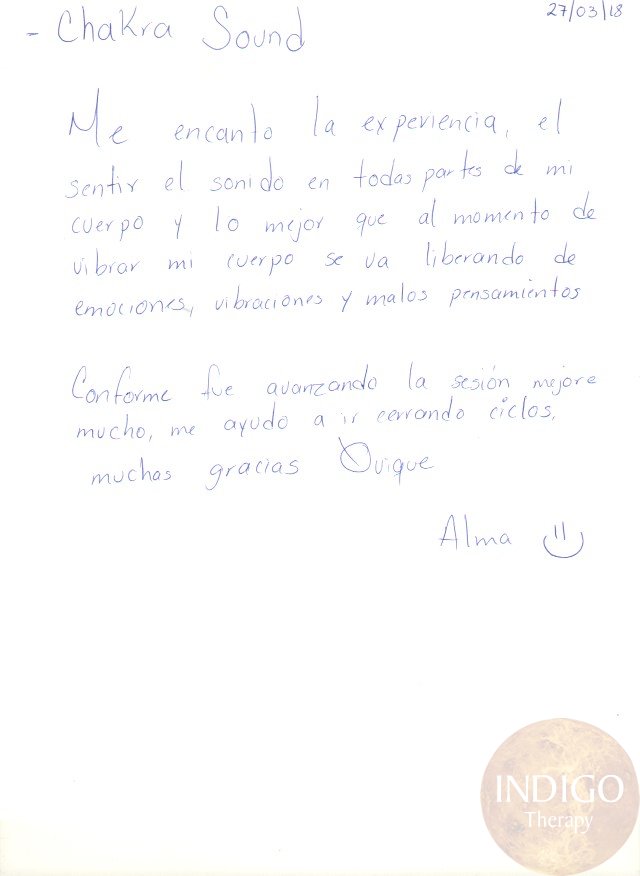 27/03/18
- Chakra Sound
Me encanto la experiencia, el
sentir el sonido en todas partes de mi
cuerpo y lo mejor que al momento de
vibrar mi cuerpo se va liberando de
emociones, vibraciones y malos pensamientos
Conforme fue avanzando la sesión mejore
mucho, me ayudo a ir cerrando ciclos,
muchas gracias Quique
Alma
INDIGO
Therapy